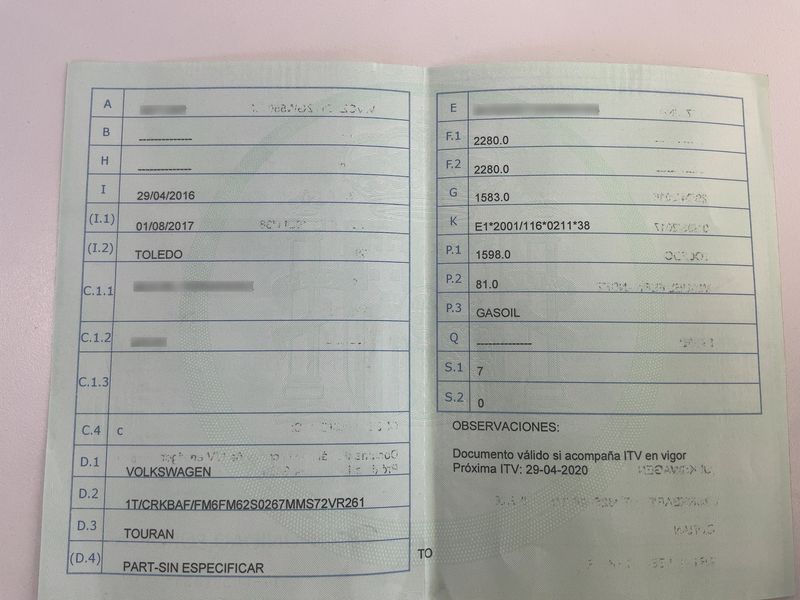 A
B -------------
H -------------
I 29/04/2016
(I.1) 01/08/2017
(I.2) TOLEDO
C.1.1
C.1.2
C.1.3
C.4 c
D.1 VOLKSWAGEN
D.2 1T/CRKBAF/FM6FM62S0267MMS72VR261
D.3 TOURAN
(D.4) PART-SIN ESPECIFICAR
TO
E
F.1 2280.0
F.2 2280.0
G 1583.0
K E1*2001/116*0211*38
P.1 1598.0
P.2 81.0
P.3 GASOIL
Q -------------
S.1 7
S.2 0
OBSERVACIONES:
Documento válido si acompaña ITV en vigor
Próxima ITV: 29-04-2020